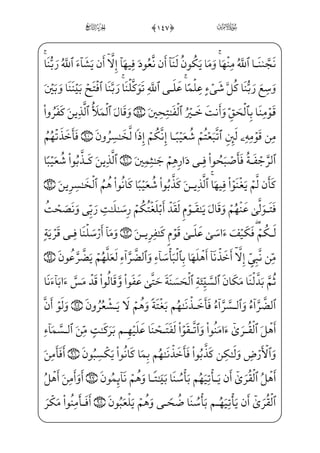 الجزء التاسع ﴿١٤٧﴾ سورة الأعراف
نَجَّىٰنَا ٱللَّهُ مِنْهَا ۚ وَمَا يَكُونُ لَنَآ أَن نَّعُودَ فِيهَآ إِلَّآ أَن يَشَآءَ ٱللَّهُ رَبُّنَا ۚ
وَسِعَ رَبُّنَا كُلَّ شَىْءٍ عِلْمًا ۚ عَلَى ٱللَّهِ تَوَكَّلْنَا ۚ رَبَّنَا ٱفْتَحْ بَيْنَنَا وَبَيْنَ
قَوْمِنَا بِٱلْحَقِّ وَأَنتَ خَيْرُ ٱلْفَٰتِحِينَ ۝٨٩ وَقَالَ ٱلْمَلَأُ ٱلَّذِينَ كَفَرُوا۟
مِن قَوْمِهِۦ لَئِنِ ٱتَّبَعْتُمْ شُعَيْبًا إِنَّكُمْ إِذًا لَّخَٰسِرُونَ ۝٩٠ فَأَخَذَتْهُمُ
ٱلرَّجْفَةُ فَأَصْبَحُوا۟ فِى دَارِهِمْ جَٰثِمِينَ ۝٩١ ٱلَّذِينَ كَذَّبُوا۟ شُعَيْبًا
كَأَن لَّمْ يَغْنَوْا۟ فِيهَا ۚ ٱلَّذِينَ كَذَّبُوا۟ شُعَيْبًا كَانُوا۟ هُمُ ٱلْخَٰسِرِينَ ۝٩٢
فَتَوَلَّىٰ عَنْهُمْ وَقَالَ يَٰقَوْمِ لَقَدْ أَبْلَغْتُكُمْ رِسَٰلَٰتِ رَبِّى وَنَصَحْتُ
لَكُمْ ۖ فَكَيْفَ ءَاسَىٰ عَلَىٰ قَوْمٍ كَٰفِرِينَ ۝٩٣ وَمَآ أَرْسَلْنَا فِى قَرْيَةٍ
مِّن نَّبِىٍّ إِلَّآ أَخَذْنَآ أَهْلَهَا بِٱلْبَأْسَآءِ وَٱلضَّرَّآءِ لَعَلَّهُمْ يَضَّرَّعُونَ ۝٩٤
ثُمَّ بَدَّلْنَا مَكَانَ ٱلسَّيِّئَةِ ٱلْحَسَنَةَ حَتَّىٰ عَفَوا۟ وَّقَالُوا۟ قَدْ مَسَّ ءَابَآءَنَا
ٱلضَّرَّآءُ وَٱلسَّرَّآءُ فَأَخَذْنَٰهُم بَغْتَةً وَهُمْ لَا يَشْعُرُونَ ۝٩٥ وَلَوْ أَنَّ
أَهْلَ ٱلْقُرَىٰٓ ءَامَنُوا۟ وَٱتَّقَوْا۟ لَفَتَحْنَا عَلَيْهِم بَرَكَٰتٍ مِّنَ ٱلسَّمَآءِ
وَٱلْأَرْضِ وَلَٰكِن كَذَّبُوا۟ فَأَخَذْنَٰهُم بِمَا كَانُوا۟ يَكْسِبُونَ ۝٩٦ أَفَأَمِنَ
أَهْلُ ٱلْقُرَىٰٓ أَن يَأْتِيَهُم بَأْسُنَا بَيَٰتًا وَهُمْ نَآئِمُونَ ۝٩٧ أَوَأَمِنَ أَهْلُ
ٱلْقُرَىٰٓ أَن يَأْتِيَهُم بَأْسُنَا ضُحًى وَهُمْ يَلْعَبُونَ ۝٩٨ أَفَأَمِنُوا۟ مَكْرَ